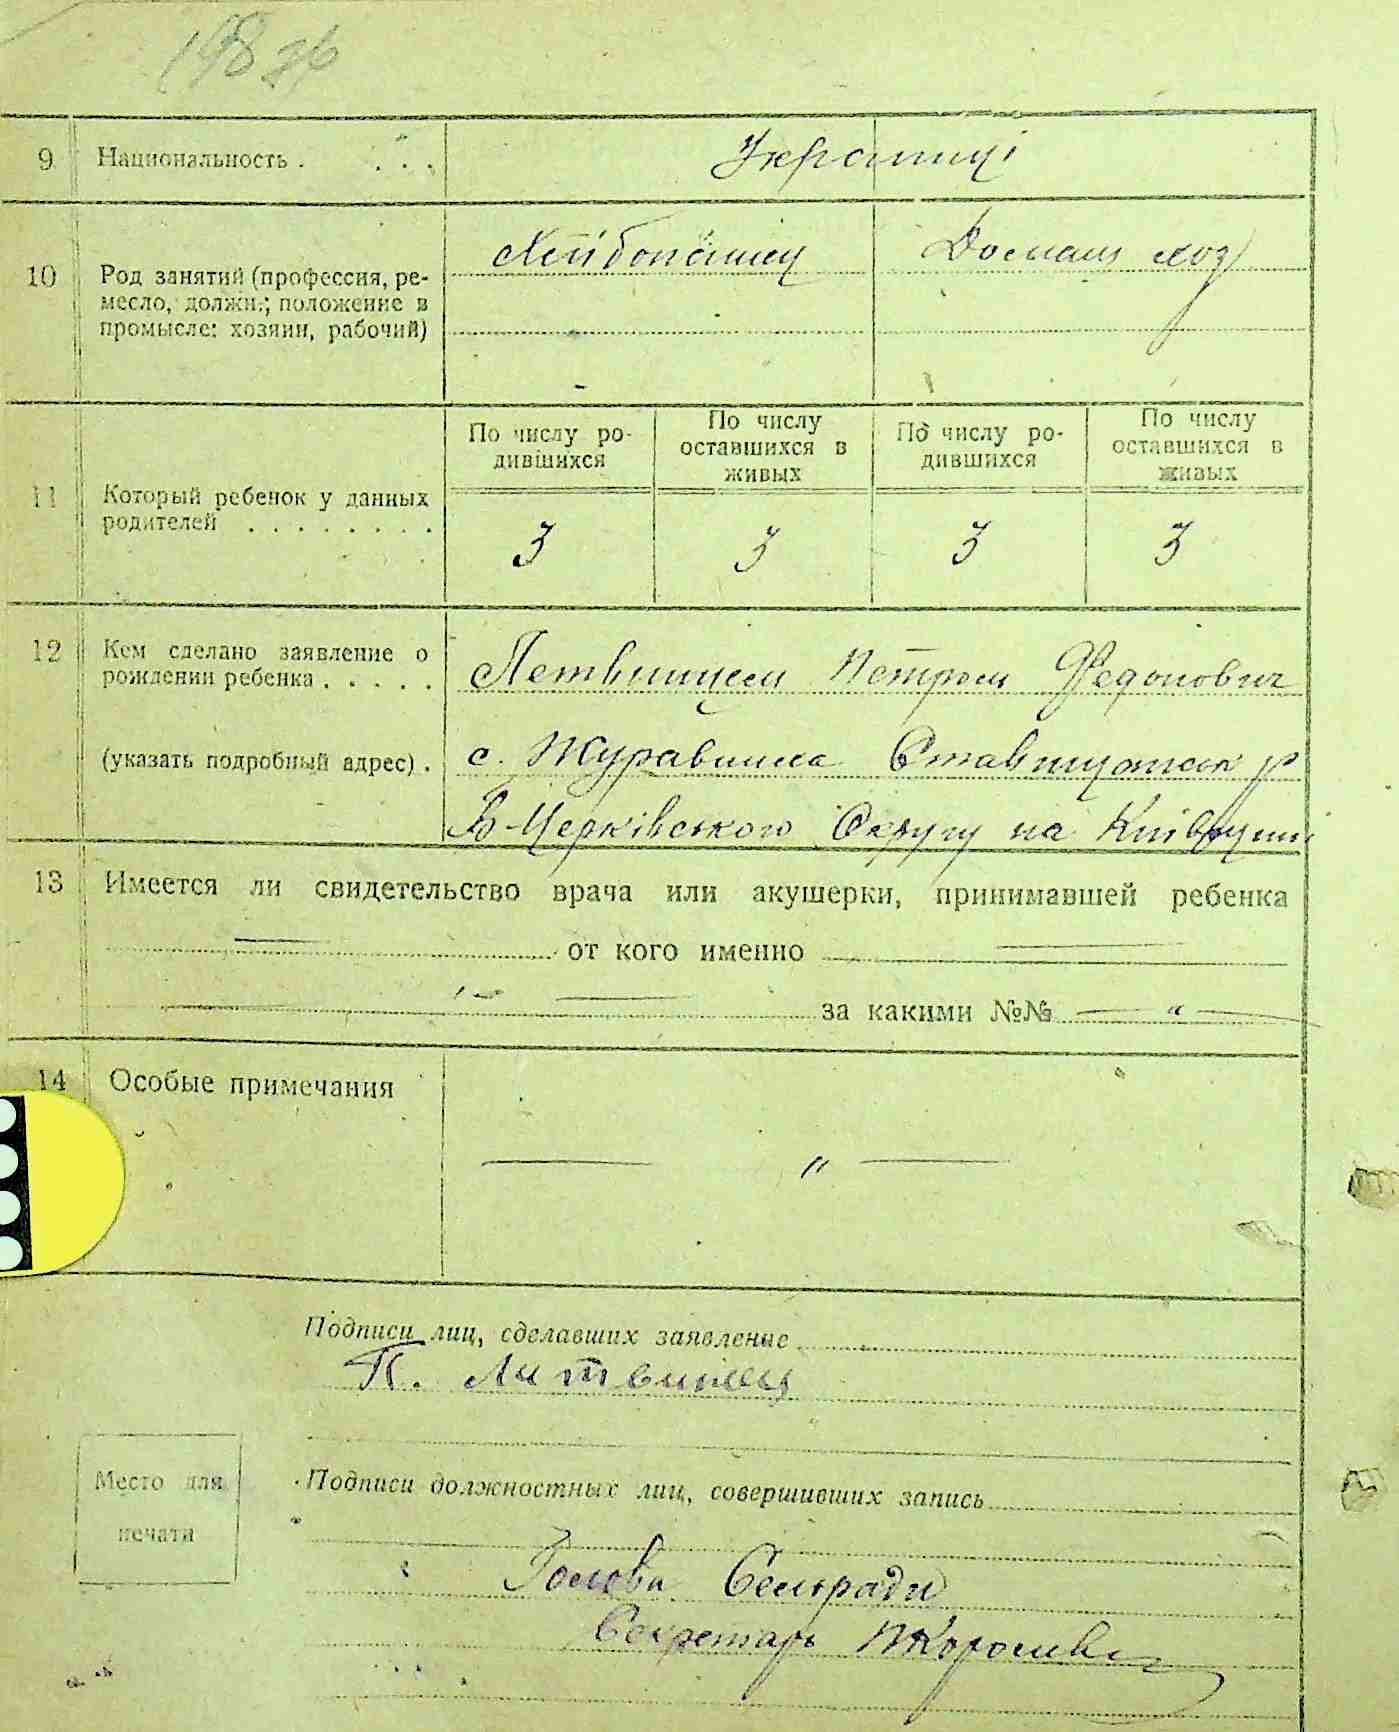 9 Национальность . . . . Украинці
10 Род занятий (профессия, ре-
месло, должн.; положение в
промысле: хозяин, рабочий)
Хлібопашец Домаш хоз
11 Который ребенок у данных
родителей . . . . . . . .
По числу ро-
дившихся
По числу
оставшихся в
живых
По числу ро-
дившихся
По числу
оставшихся в
живых
3 3 3 3
12 Кем сделано заявление о
рождении ребенка . . . . .
(указать подробный адрес) .
Петром Федонович
с. Журавлиха р
Б-Церківського Округу на Київщині
13 Имеется ли свидетельство врача или акушерки, принимавшей ребенка
от кого именно
за какими №№ — " —
14 Особые примечания
— " —
Подписи лиц, сделавших заявление
П. Литвинец
Место для
печати
Подписи должностных лиц, совершивших запись
Голова Сельради
Секретарь